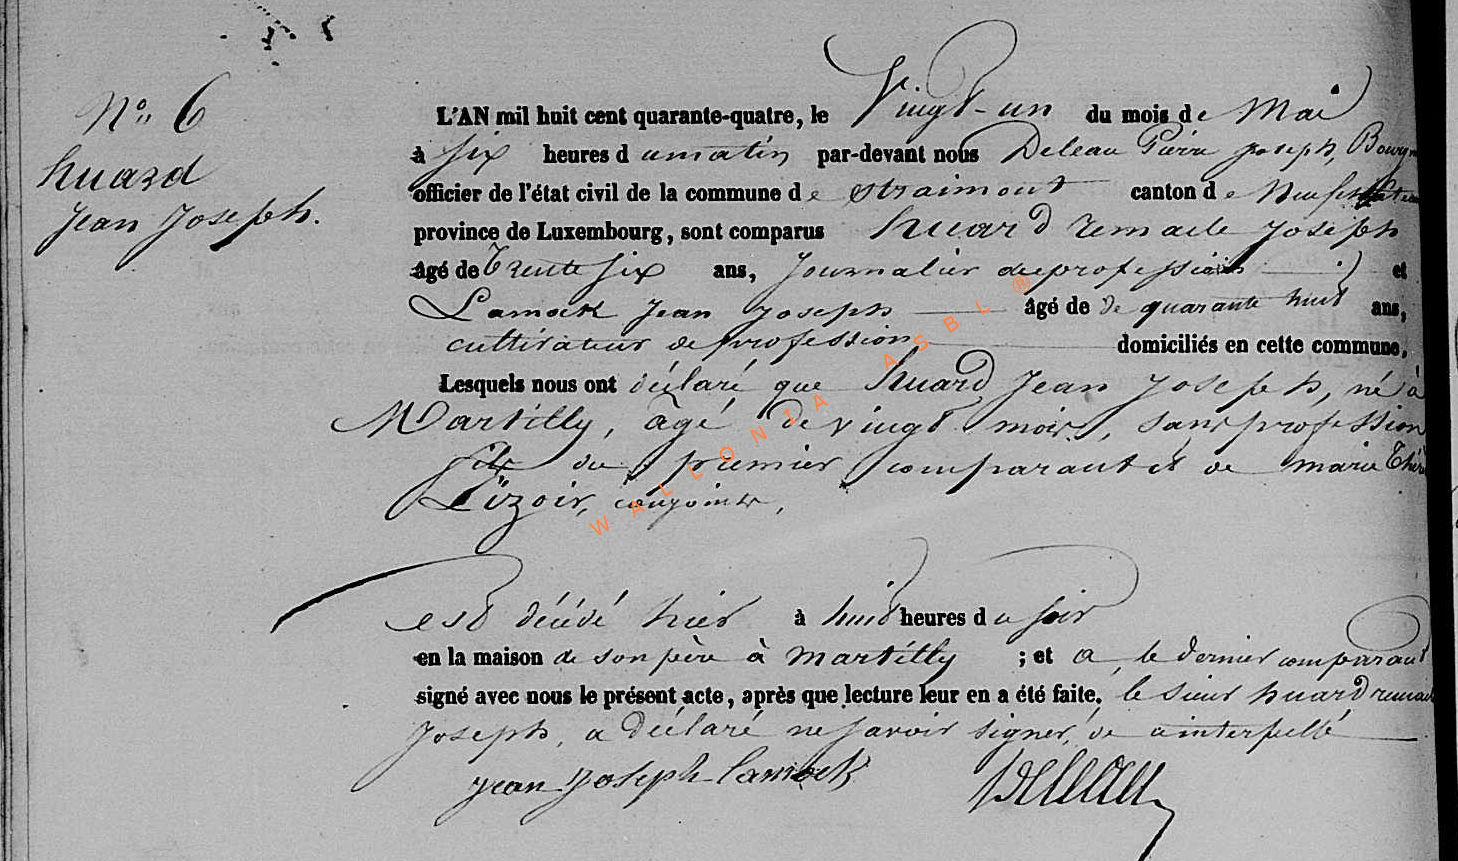 N° 6
huard
Jean Joseph.
L'AN mil huit cent quarante-quatre, le Vingt-un du mois de Mai
à six heures d u matin par-devant nous Deleau Pierre Joseph, Bourgm
officier de l'état civil de la commune de Straimont canton de Neufchateau
province de Luxembourg, sont comparus huard remacle Joseph
âgé de Trente six ans, Journalier de profession et
Lamock Jean Joseph âgé de de quarante huit ans,
cultivateur de profession domiciliés en cette commune.
Lesquels nous ont déclaré que huard Jean Joseph, né à
Martilly, âgé de vingt mois, sans profession
fils du premier comparant et de marie Thér
Lizoir, conjoints,
est décédé hier à huit heures du soir
en la maison de son père à Martilly ; et a le dernier comparant
signé avec nous le présent acte, après que lecture leur en a été faite. le sieur huard remacle
Joseph, a déclaré ne savoir signer, de ainterpellé
Jean Joseph lamock Deleau
WALLONIA ASBL ®